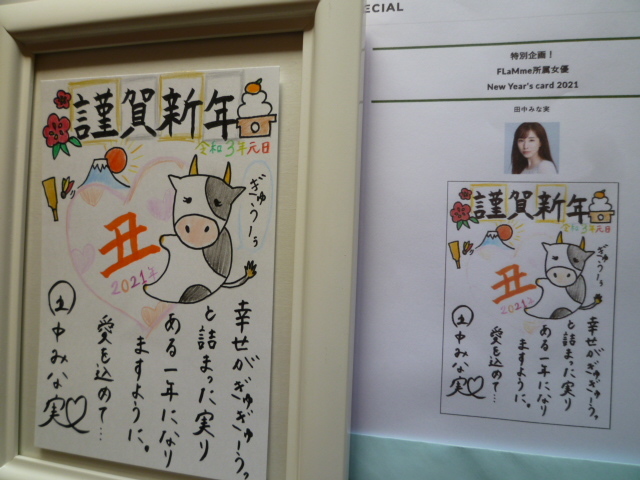 謹賀新年
令和3年元日
ぎゅうーぅ
丑
2021年
幸せがぎゅぎゅーぅっ
と詰まった実り
ある一年になり
ますように。
愛を込めて…
田中みな実♡
SPECIAL
特別企画！
FLaMme所属女優
New Year's card 2021
田中みな実
謹賀新年
令和3年元日
ぎゅうーぅ
丑
2021年
幸せがぎゅぎゅーぅっ
と詰まった実り
ある一年になり
ますように。
愛を込めて…
田中みな実♡